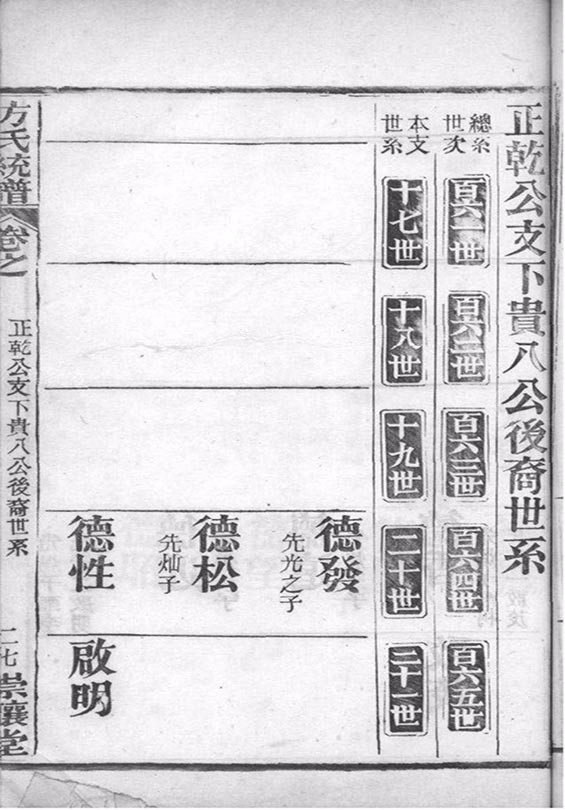 正乾公支下貴八公後裔世系
總系世次
百六一世
百六二世
百六三世
百六四世
百六五世
本支世系
十七世
十八世
十九世
二十世
二十一世
德發
先光之子
德松
先灿子
德性
啟明
方氏統譜
卷之
正乾公支下貴八公後裔世系
二七
崇讓堂